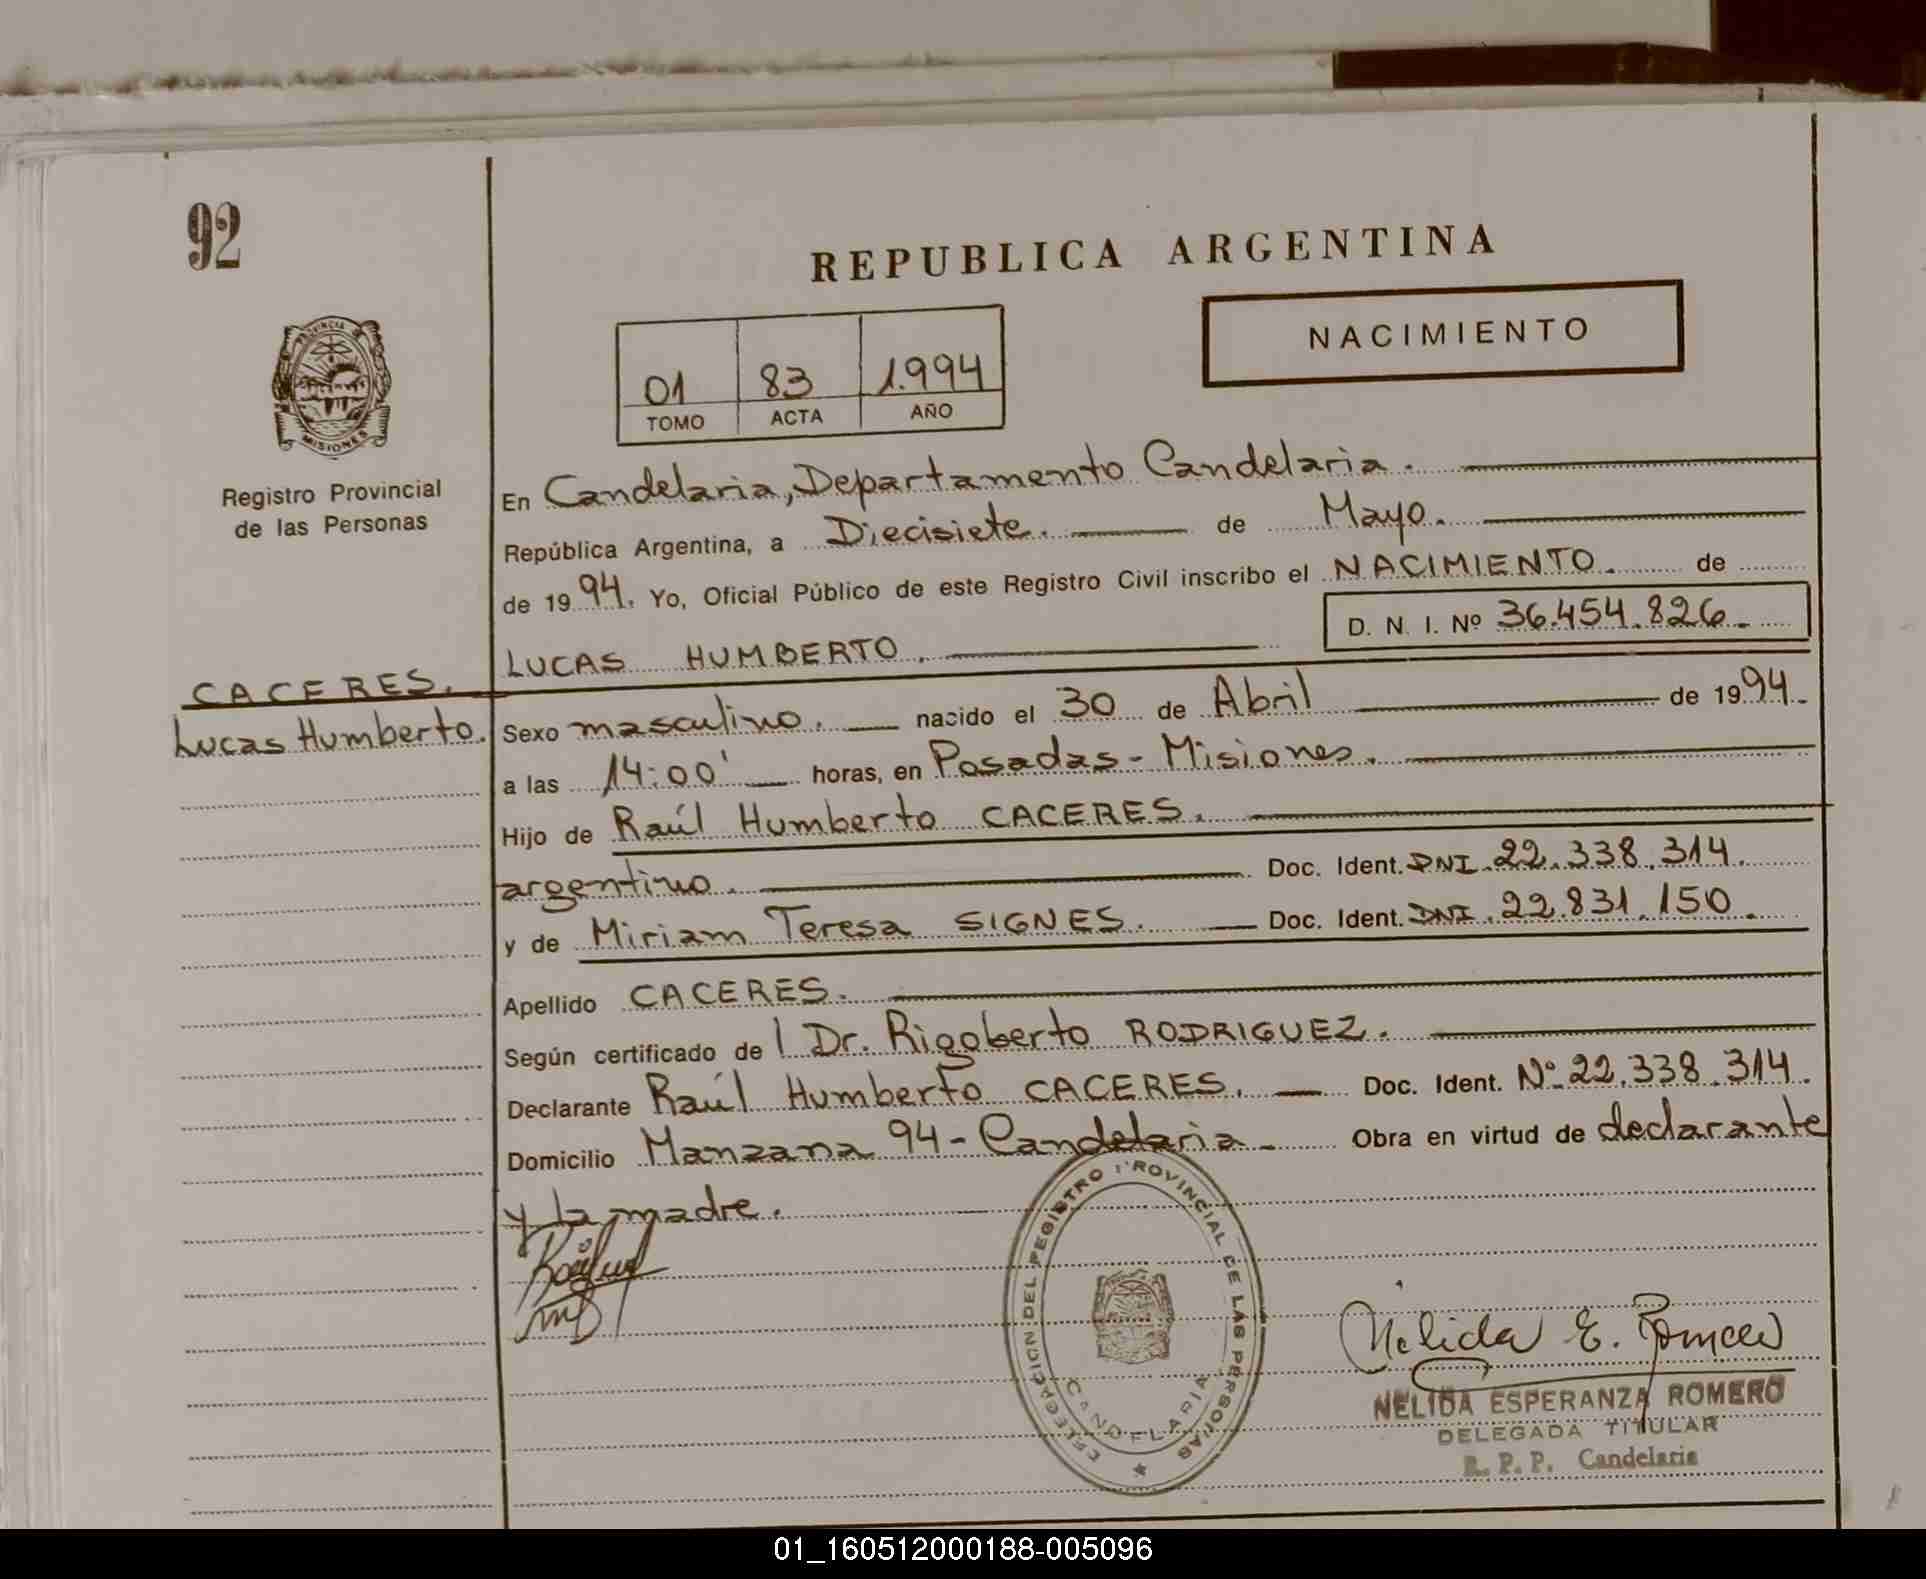 92
REPUBLICA ARGENTINA
NACIMIENTO
01 83 1.994
TOMO ACTA AÑO
PROVINCIA DE
MISIONES
Registro Provincial
de las Personas
En Candelaria, Departamento Candelaria.
República Argentina, a Diecisiete. de Mayo.
de 19 94. Yo, Oficial Público de este Registro Civil inscribo el NACIMIENTO. de
D. N. I. Nº 36.454.826.
LUCAS HUMBERTO.
CACERES.
Lucas Humberto.
Sexo masculino. nacido el 30 de Abril de 1994.
a las 14:00' horas, en Posadas - Misiones.
Hijo de Raúl Humberto CACERES.
argentino. Doc. Ident. DNI. 22.338.314.
y de Miriam Teresa SIGNES. Doc. Ident. DNI. 22.831.150.
Apellido CACERES.
Según certificado de l Dr. Rigoberto RODRIGUEZ.
Declarante Raúl Humberto CACERES. Doc. Ident. Nº 22.338.314.
Domicilio Manzana 94 - Candelaria. Obra en virtud de declarante
y la madre.
DELEGACION DEL REGISTRO PROVINCIAL DE LAS PERSONAS
CANDELARIA
Nélida E. Romero
NELIDA ESPERANZA ROMERO
DELEGADA TITULAR
R. P. P. Candelaria
01_160512000188-005096